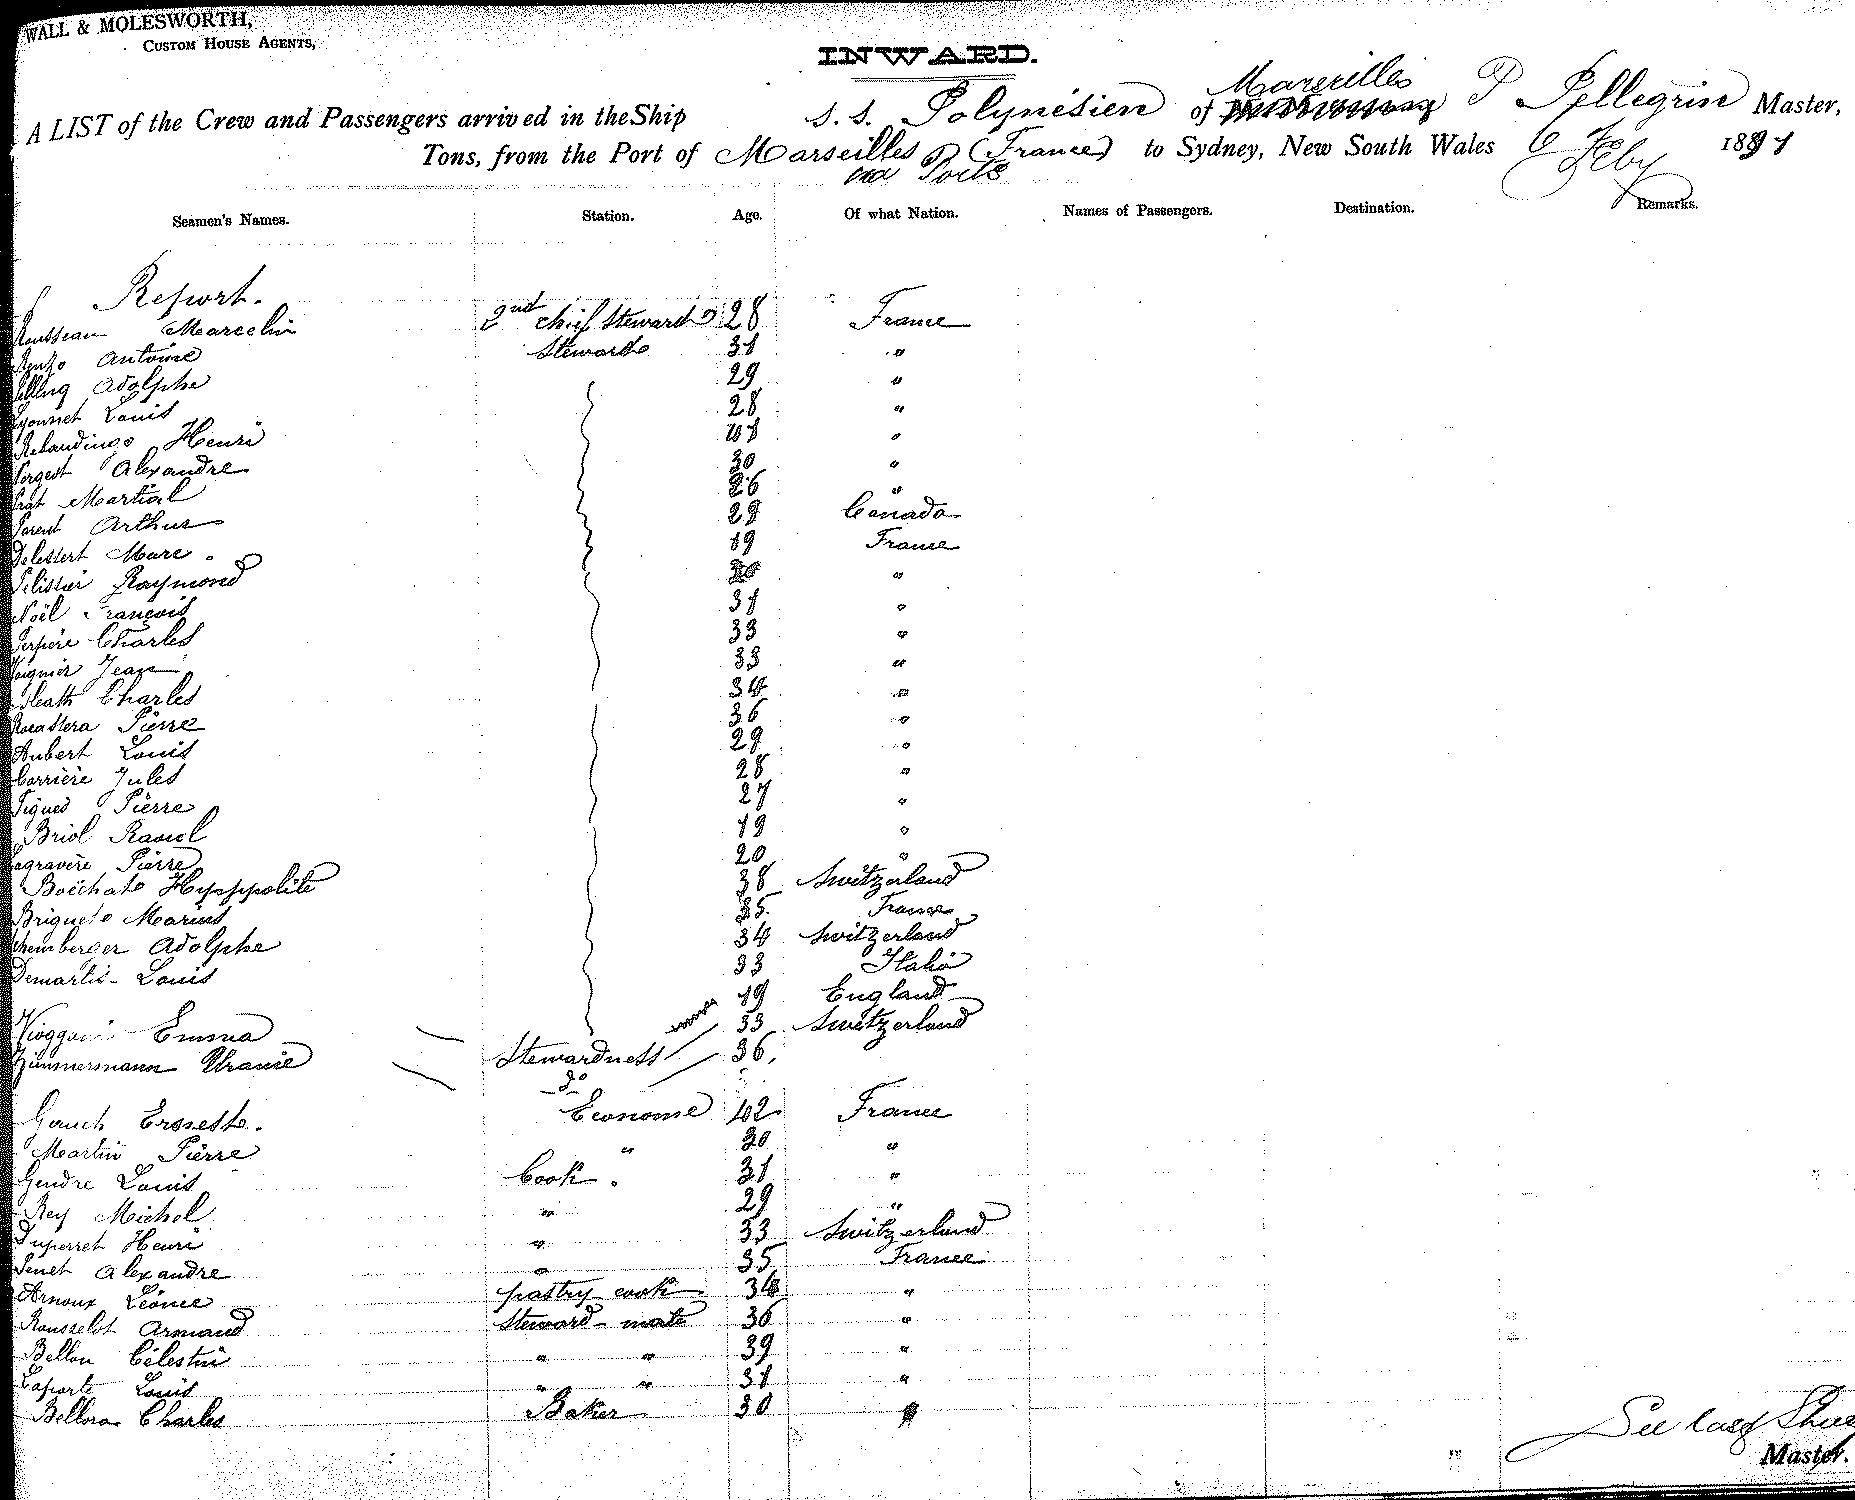 WALL & MOLESWORTH,
CUSTOM HOUSE AGENTS,
INWARD.
Marseilles
A LIST of the Crew and Passengers arrived in the Ship s.s. Polynésien of P Pellegrin Master,
Tons, from the Port of Marseilles (France) to Sydney, New South Wales 6 Feby 1891
and Ports
Seamen's Names. Station. Age. Of what Nation. Names of Passengers. Destination. Remarks.
Report.
Rousseau Marcelin 2nd chief Steward 28 France
Antoine Stewards 31 "
Adolphe 29 "
Lyonnet Louis 28 "
Henri 41 "
Vergest Alexandre 30 "
Prat Martial 26 "
Parent Arthur 29 Canada
Delessert Marc. 19 France
Pelissier Raymond "
Noël François 31 "
Perpère Charles 33 "
Jean 33 "
Heath Charles 34 "
Pierre 36 "
Hubert Louis 29 "
Carrière Jules 28 "
Pierre 27 "
Briol Raoul 19 "
Lagravère Pierre 20 "
Boéchat Hypppolite 38 Switzerland
Briquet Marius 35. France
Adolphe 34 Switzerland
Demartis - Louis 33 Italia
19 England
Emma Stewardness 33 Switzerland
Zimmermann Uranie do 36.
Gauch Ernest. Econome 42 France
Martin Pierre " 30 "
Gendre Louis Cook. 31 "
Rey Michel " 29 "
Duperret Henri " 33 Switzerland
Penet Alexandre " 35 France
Arnoux Léonce pastry cook 34 "
Rousselot Armand Steward - mate 36 "
Bellon Célestin " " 39 "
Laporte Louis " " 31 "
Bellora Charles Baker 30 "
See last Shee
Master.